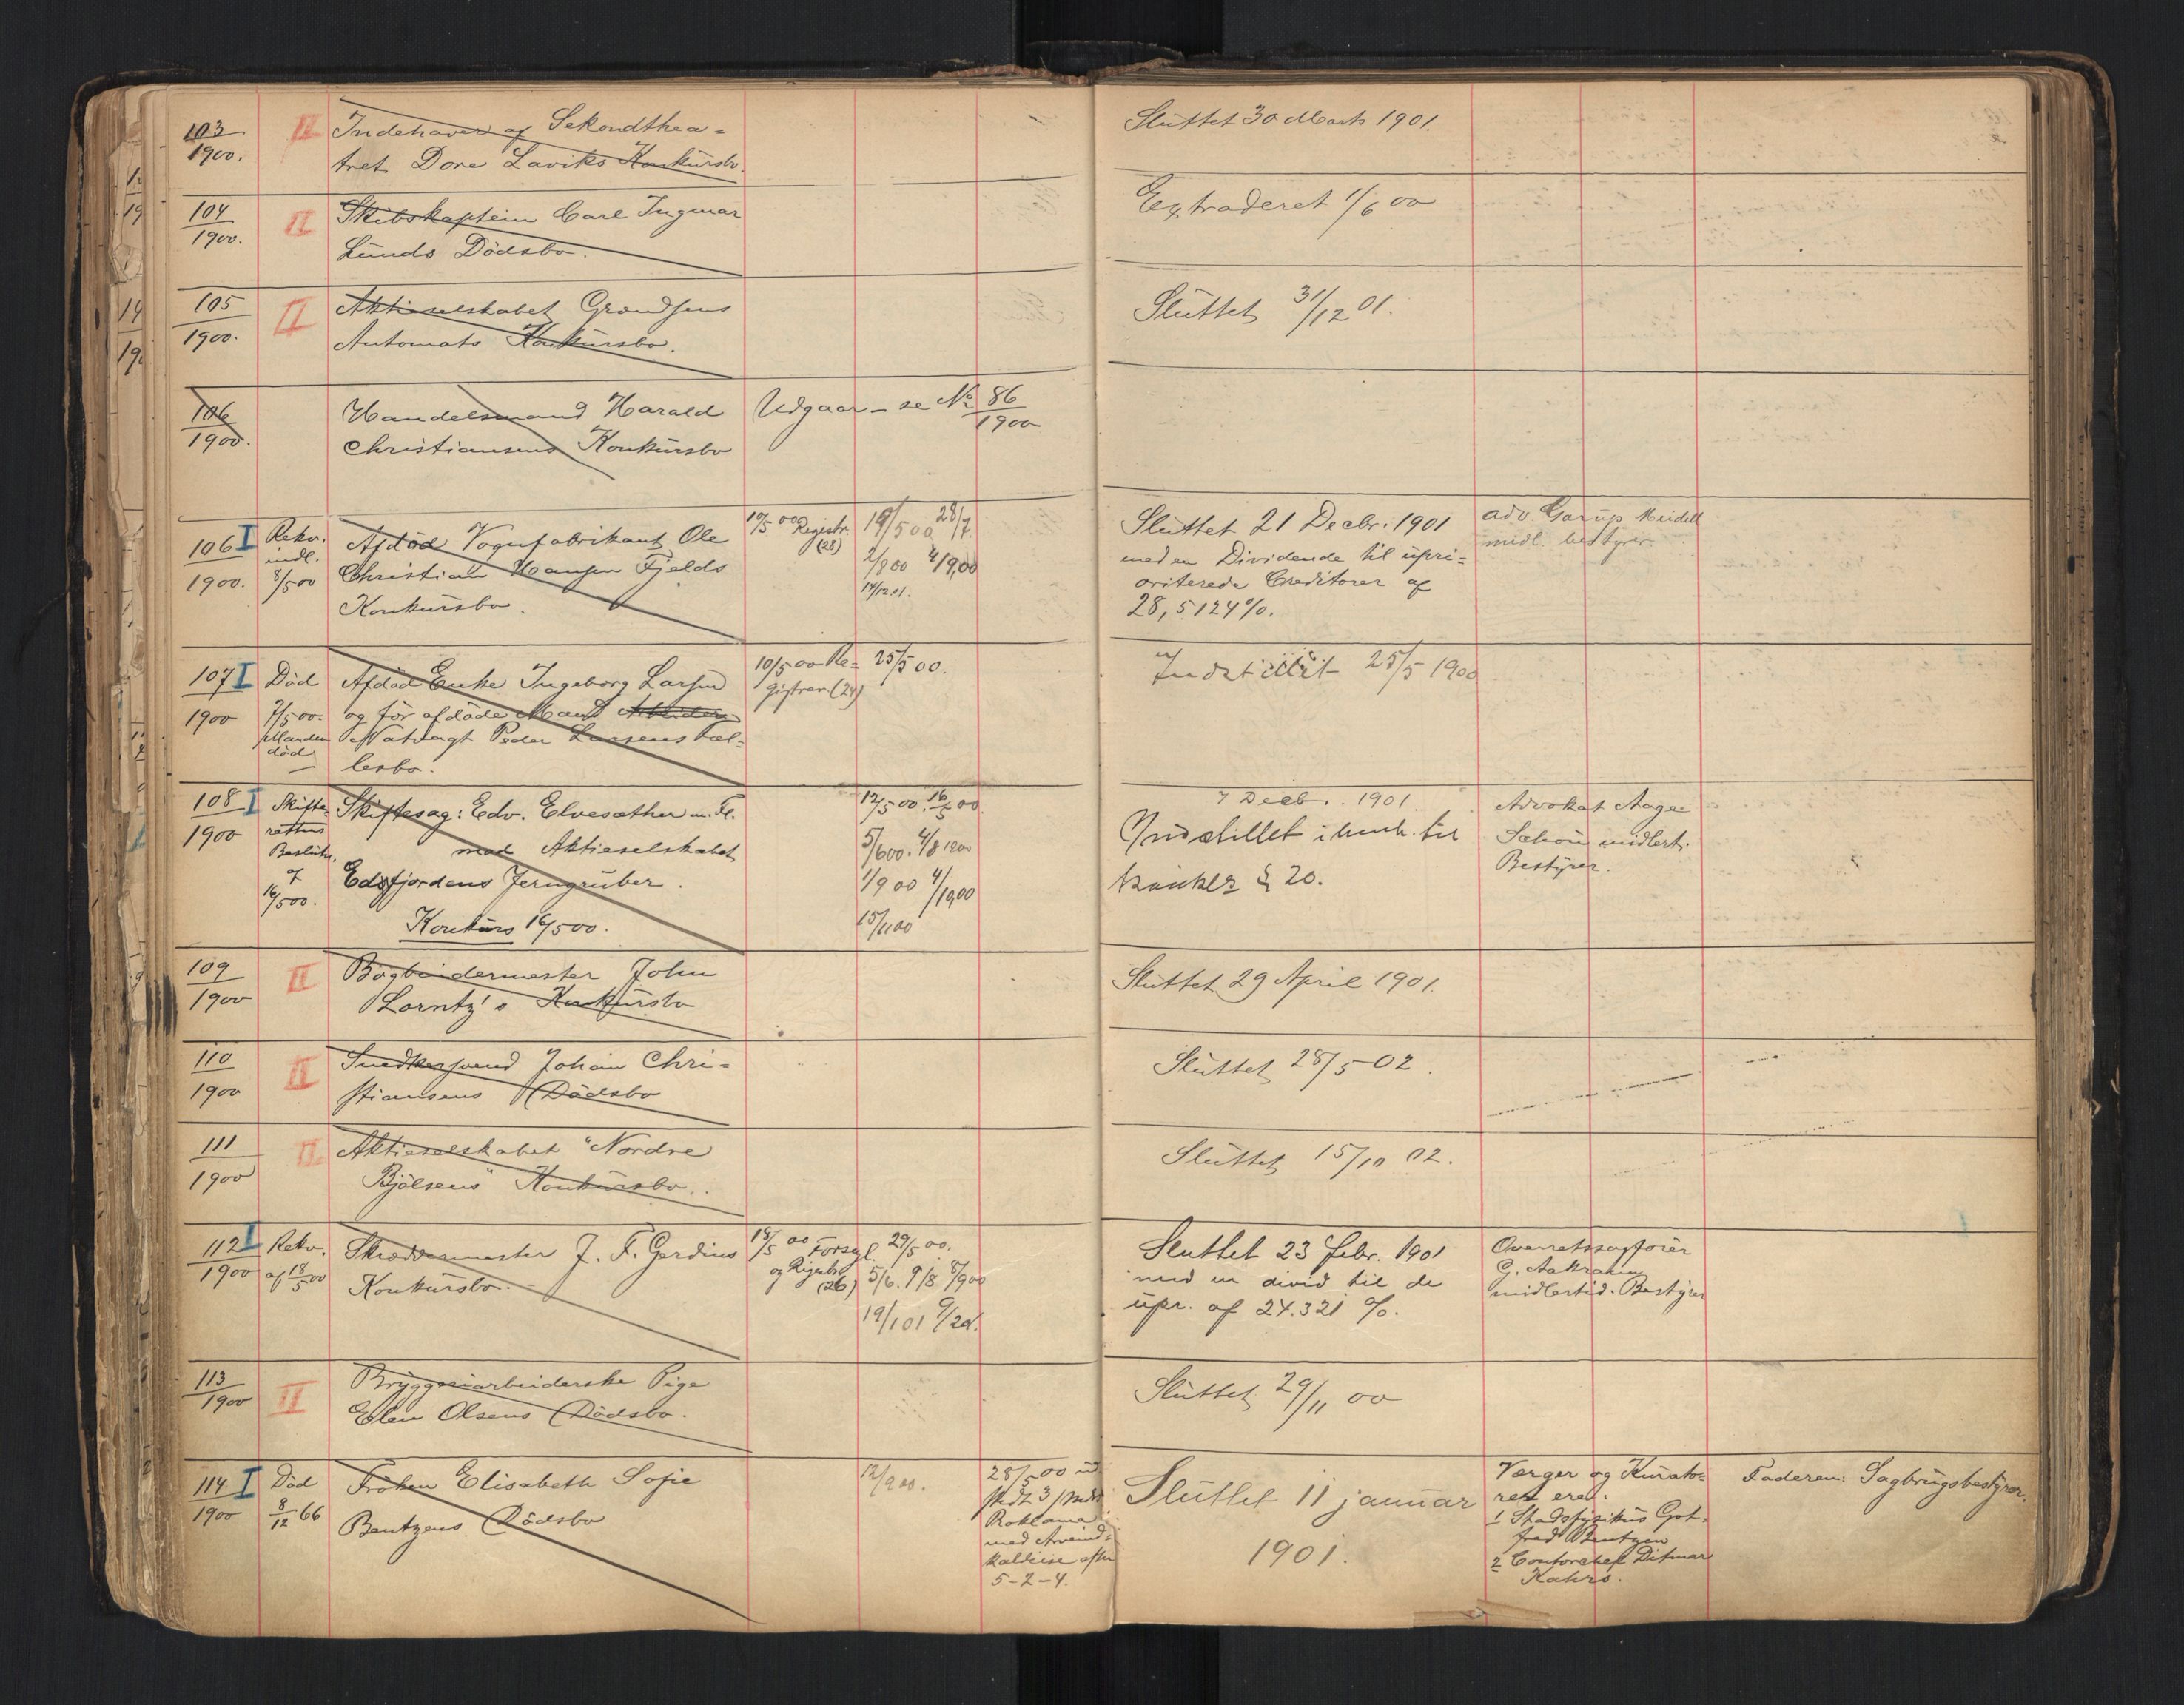 103
1900.
II
Indehaver af Sekondthea-
tret Dore Laviks Konkursbo.
Sluttet 30 Marts 1901.
104
1900.
II
Skibskaptein Carl Ingmar
Lunds Dödsbo.
Extraderet 1/6 00
105
1900.
II
Aktieselskabet Grøndsens
Automats Konkursbo.
Sluttet 31/12 01.
106
1900.
Handelsmand Harald
Christiansens Konkursbo
Udgaar - se No 86
1900
106 I
1900.
Rekv.
indl.
8/5 00
Afdöd Vognfabrikant Ole
Christian Hansen Fjelds
Konkursbo.
10/5 00 Registr.
(28)
19/5 00 28/7.
2/8 00 4/9 00
14/12 01.
Sluttet 21 Decbr. 1901
med en Dividende til upri-
oriterede Creditorer af
28,5124%.
adv Garup Meidell
midl. bestyrer
107 I
1900
Död
7/5 00.
Manden
död
Afdöd Enke Ingeborg Larsen
og för afdöde Mand Arbeider
Natvagt Peder Larsens Fæl-
lesbo.
10/5 00 Re-
gistrer. (24)
25/5 00.
Indstillet 25/5 1900
108 I
1900
Skifte-
rettens
Beslutn.
af
16/5 00.
Skiftesag: Edv. Elvesæther m. Fl.
mod Aktieselskabet
Edsfjordens Jerngruber.
Konkurs 16/5 00.
12/5 00. 16/5 00
5/6 00. 4/8 1900
1/9 00 4/10 00
15/11 00
7 Decb. 1901
Indstillet i henh. til
konkl § 20.
Advokat Aage
Schou midlert.
Bestyrer.
109
1900
II
Bogbindermester John
Lorntz's Konkursbo
Sluttet 29 April 1901.
110
1900
II
Snedkersvend Johan Chri-
stiansens Dödsbo
Sluttet 28/5 02.
111
1900
II
Aktieselskabet "Nordre
Bjölsens" Konkursbo.
Sluttet 15/10 02.
112 I
1900
Rekv.
af 18/5 00
Skræddermester J. F. Gerdius
Konkursbo.
18/5 00 Forsegl.
og Registr.
(26)
29/5 00.
5/6. 9/8 8/9 00
19/1 01
Sluttet 23 febr. 1901
med en divid til de
upr. af 24.321 %.
Overretssagförer
G. Aakrann
midlertid. Bestyrer
113
1900
II
Bryggeriarbeiderske Pige
Elen Olsens Dödsbo.
Sluttet 29/11 00
114 I
1900
Död
8/12 66
Fröken Elisabeth Sofie
Bentzens Dödsbo
12/9 00.
28/5 00 ud
stedt 3 Mdrs
Proklama
med Arveind-
kaldelse efter
5-2-4.
Sluttet 11 januar
1901.
Værger og Kurato-
rer ere:
1 Stadsfysikus Got-
fred Bentzen
2 Contorchef Ditmar
Kahrs.
Faderen: Sagbrugsbestyrer.